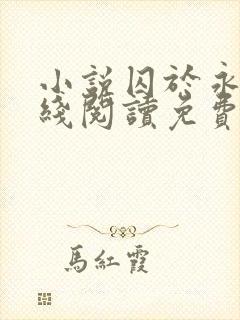 小說囚於永
綫閱讀免費
馬紅霞